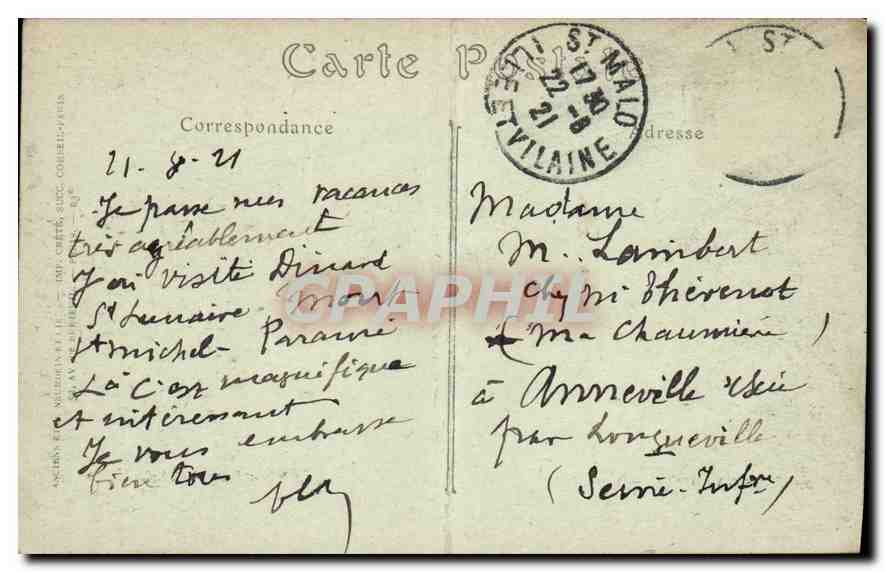 Carte Postale
Correspondance
Adresse
ST MALO
ILLE ET VILAINE
17 30
22 - 8
21
ST
21 - 8 - 21
Je passe mes vacances
très agréablement
J'ai visité Dinard
St Lunaire Mont
St Michel - Paramé
Là c'est magnifique
et intéressant
Je vous embrasse
bien tous
Madame
M.. Lambert
chez Mr Thévenot
(Ma Chaumière)
à Anneville
par Longueville
(Seine-Infre)
CPAPHIL